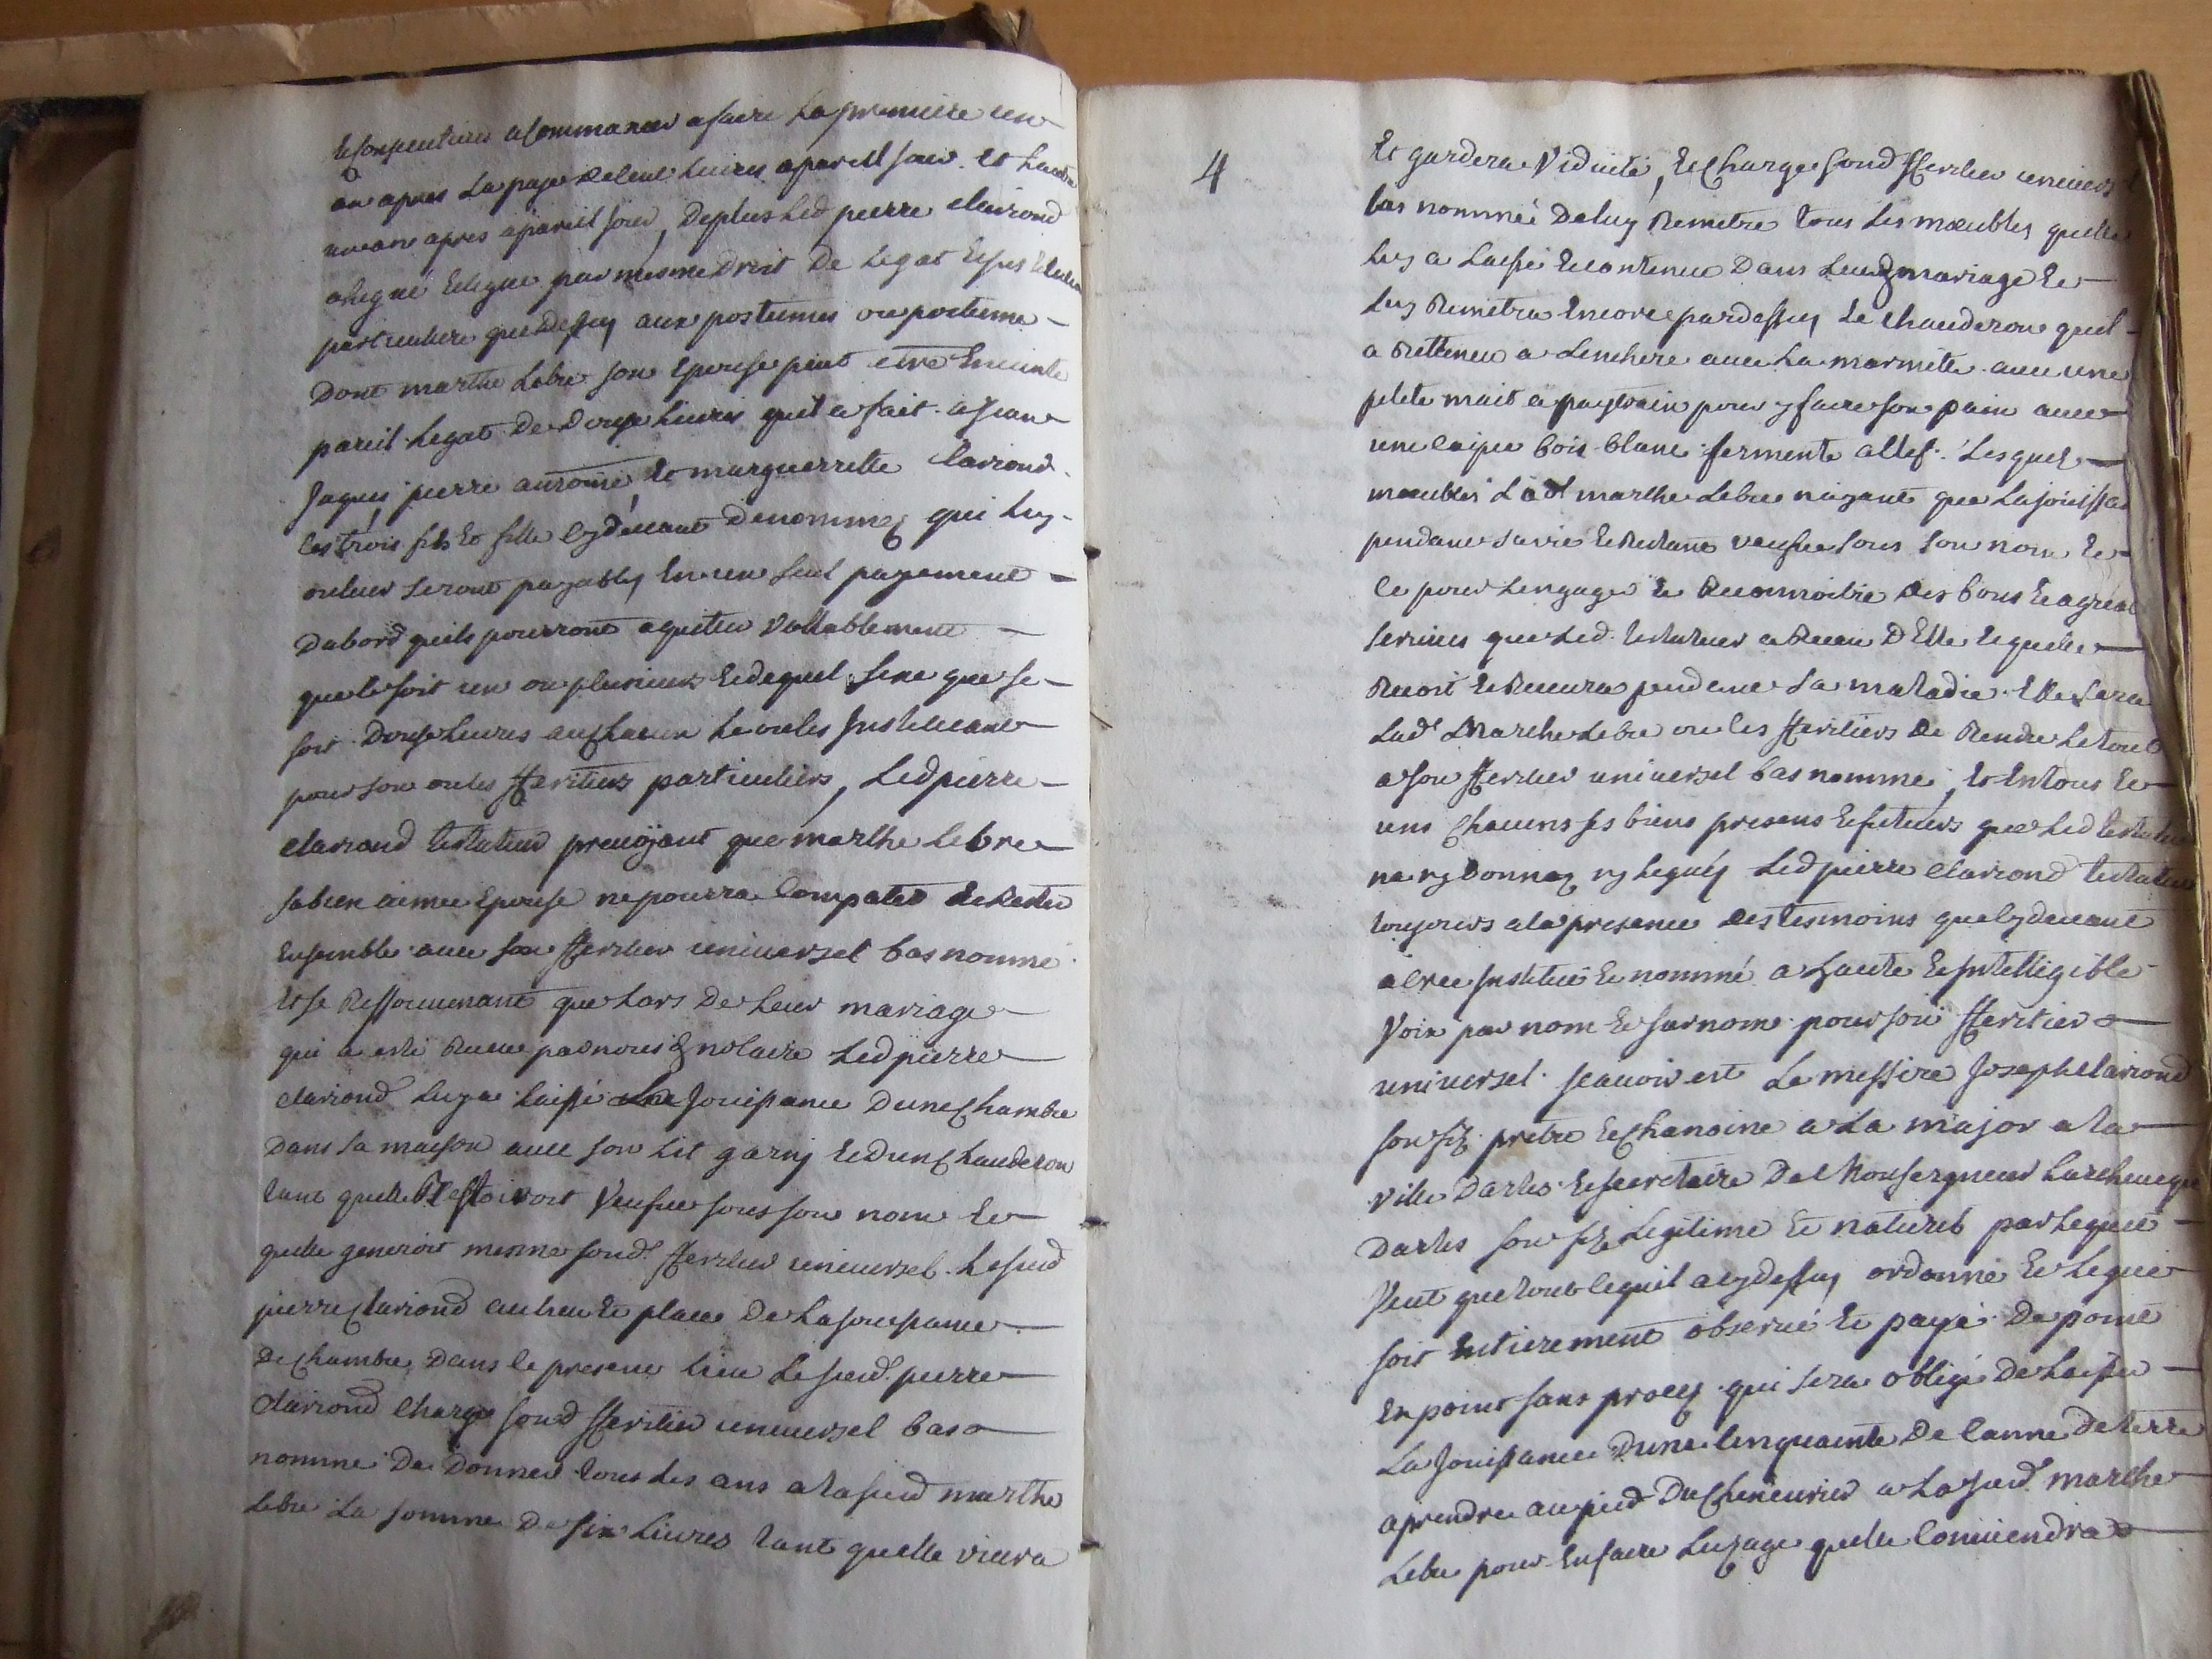 a commancer a faire la premiere un
an apres la paye apareil jour et lautre
un an apres apareil jour, deplus led pierre clariond
a legué et legue par mesme droit de legat
particuliere que dessus aux postumes ou postume
dont marthe Lebre son epouse peut etre enceinte
pareil legat de douze livres quil a fait a Jean
Jaques, pierre antoine, et marguerrette clariond
ces trois fils et fille cy devant denommez qui luy
ou leur seront payables en un seul payement
dabord quils pourront aquitter vallablement
que ce soit un ou plusieurs et dequel sexe que se
soit douze livres a chacun le ou les Instituant
pour son ou les heritiers particuliers, led pierre
clariond testateur prevoyant que marthe Lebre
sa bien aimee epouse ne pourra compater et rester
ensemble avec son heritier universel bas nommé
et se ressouvenant que lors de leur mariage
qui a esté receu par nous d notaire led pierre
clariond luy a laissé la Jouissance dune chambre
dans sa maison avec son lit garny et dun chauderon
tant quelle vefve sous son nom et
quelle generoit mesme sond heritier universel lesusd
pierre clariond au lieu et place de la jouissance
de chambre dans le present lieu lesusd pierre
clariond charge sond heritier universel bas
nomme de donner tous les ans a lasusd marthe
Lebre la somme de six livres tant quelle vivra
4
Et gardera viduité, et charge sond heritier univers
bas nommé de luy remetre tous les mœubles quelle
luy a laissé et contenu dans leurd mariage et
luy remetra encore pardessus le chauderon quel
a rettenu a lenchere avec la marmitte avec une
petite mait a paytrain pour y faire son pain avec
une caisse bois blanc fermente a clef. Lesquels
mœubles lad marthe Lebre nayant que la jouissan
pendant sa vie et restant veufve sous son nom et
ce pour lengager et reconnoitre des bons et agreab
services que led testateur a receu d Elle et quelle
recoit et recevra pendant sa maladie. Elle sera
lad Marthe Lebre ou les heritiers de rendre le tout
a son heritier universel bas nommé, et en tous et
uns chacuns ses biens presens et futeurs que led testateur
na ny donnez ny leguez led pierre clariond testateur
toujours a la presence des tesmoins que cy devant
a cree Institué et nommé a haute et Intelligible
voix par nom et surnom pour son heritier
universel. scavoir est le messire Joseph clariond
son fiz pretre et chanoine a la major a la
ville darles et secretaire de Monseigneur larcheveque
darles son fiz legitime et naturel par lequel
veut que tout ce quil a cy dessus ordonné et legué
soit entierement observé et payé de point
en point sans proces qui sera obligé de laisser
la Jouissance dune cinquante de canne de terre
a prendre au pied du chenevier a lasusd marthe
Lebre pour en faire lusage quelle conviendra